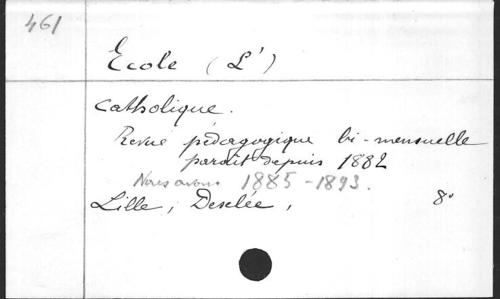 461
École (L')
catholique.
Revue pédagogique bi-mensuelle
paraît depuis 1882
Nous avons 1885-1893.
Lille, Desclée, 8°